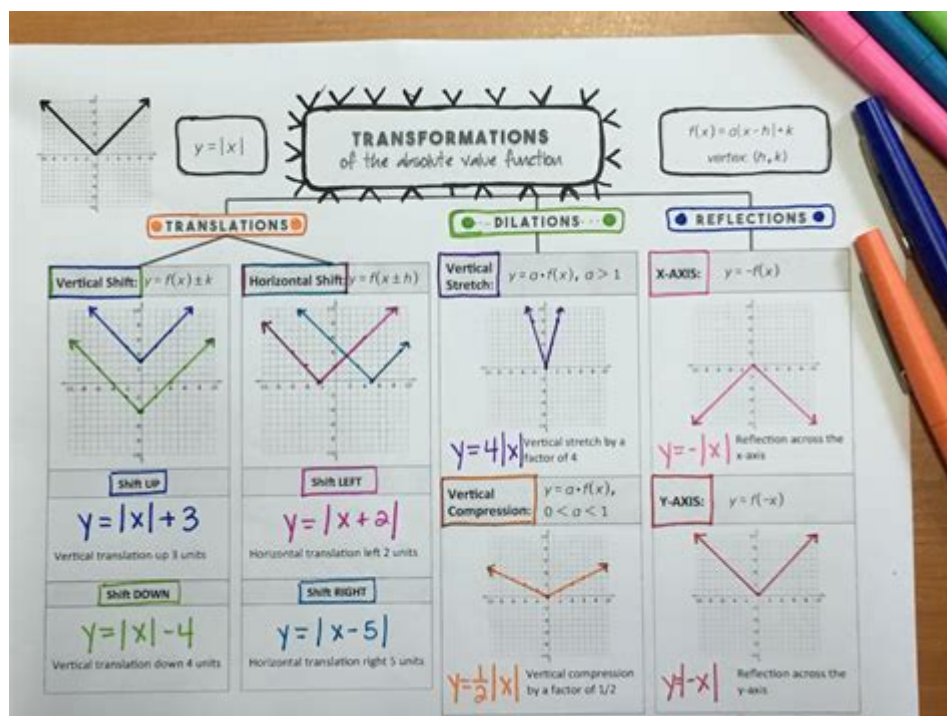 TRANSFORMATIONS
of the absolute value function
y = |x|
f(x) = a|x - h| + k
vertex: (h, k)
TRANSLATIONS
Vertical Shift: y = f(x) ± k
Shift UP
y = |x| + 3
Vertical translation up 3 units
Shift DOWN
y = |x| - 4
Vertical translation down 4 units
Horizontal Shift: y = f(x ± h)
Shift LEFT
y = |x + 2|
Horizontal translation left 2 units
Shift RIGHT
y = |x - 5|
Horizontal translation right 5 units
DILATIONS
Vertical
Stretch:
y = a • f(x), a > 1
y = 4|x|
Vertical stretch by a
factor of 4
Vertical
Compression:
y = a • f(x),
0 < a < 1
y = 1/2 |x|
Vertical compression
by a factor of 1/2
REFLECTIONS
X-AXIS: y = -f(x)
y = -|x|
Reflection across the
x-axis
Y-AXIS: y = f(-x)
y = |-x|
Reflection across the
y-axis